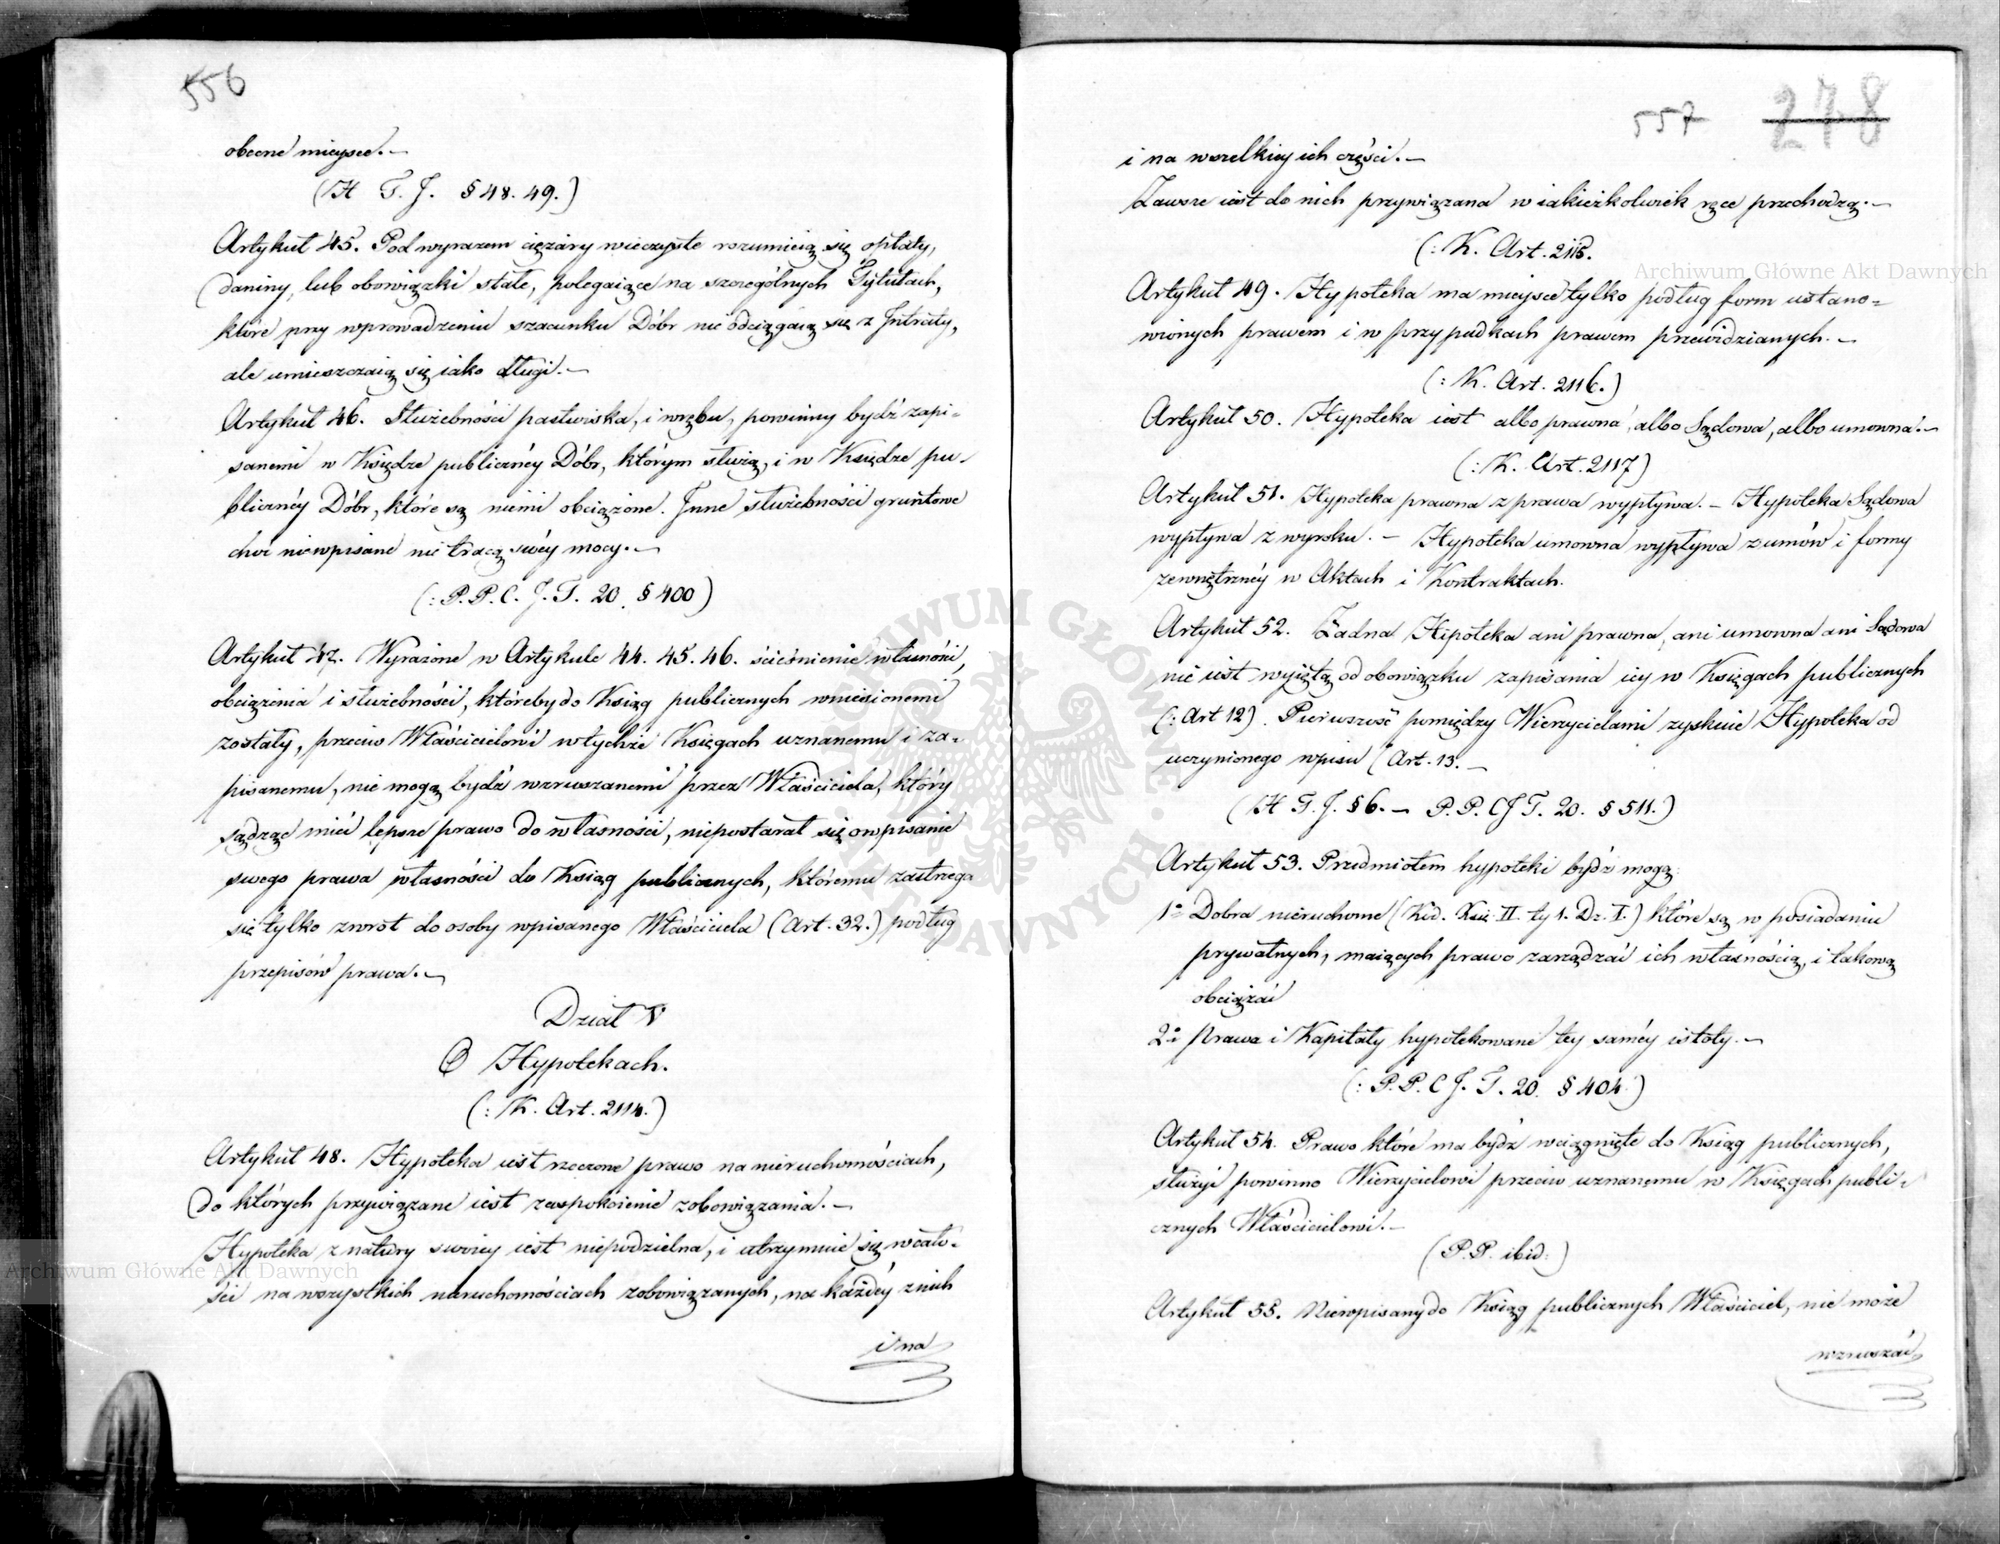 556
obecne mieysce.—
(H T. J. § 48. 49.)
Artykuł 45. Pod wyrazem ciężary wieczyste rozumieią się opłaty,
daniny, lub obowiązki stałe, polegaiące na szczególnych Tytułach,
które przy wprowadzeniu szacunku Dóbr nie odciągaią się z Intraty,
ale umieszczaią się iako długi.—
Artykuł 46. Służebności pastwiska, i wrębu, powinny bydź zapi-
sanemi w Księdze publicznéy Dóbr, którym służą, i w Księdze pu-
blicznéy Dóbr, które są niemi obciążone. Inne służebności gruntowe
choć niewpisane nie tracą swéy mocy.—
(: P. P. C. J. T. 20. § 400)
Artykuł 47. Wyrażone w Artykule 44. 45. 46. ścieśnienie własności,
obciążenia i służebności, któreby do Ksiąg publicznych wniesionemi
zostały, przeciw Właścicielowi w tychże Księgach uznanemu i za-
pisanemu, nie mogą bydź wzruszanemi przez Właściciela, który
sądząc mieć lepsze prawo do własności, niepostarał się o wpisanie
swego prawa własności do Ksiąg publicznych, któremu zastrzega
się tylko zwrot do osoby wpisanego Właściciela (Art. 32.) podług
przepisów prawa.—
Dział V
O Hypotekach.
(: K. Art. 2114.)
Artykuł 48. Hypoteka iest rzeczone prawo na nieruchomościach,
do których przywiązane iest zaspokoienie zobowiązania.—
Hypoteka z natury swoiey iest niepodzielna, i utrzymuie się w cało-
ści na wszystkich nieruchomościach zobowiązanych, na każdéy z nich
i na
557 278
i na wszelkiey ich części.—
Zawsze iest do nich przywiązana w iakieżkolwiek ręce przechodzą.—
(: K. Art. 2115.
Artykuł 49. Hypoteka ma mieysce tylko podług form ustano-
wionych prawem i w przypadkach prawem przewidzianych.—
(: K. Art. 2116.)
Artykuł 50. Hypoteka iest albo prawna, albo Sądowa, albo umowna.—
(: K. Art. 2117)
Artykuł 51. Hypoteka prawna z prawa wypływa.— Hypoteka Sądowa
wypływa z wyroku.— Hypoteka umowna wypływa z umów i formy
zewnętrznéy w Aktach i Kontraktach.
Artykuł 52. Żadna Hipoteka ani prawna, ani umowna ani Sądowa
nie iest wyiętą od obowiązku zapisania iey w Księgach publicznych
(: Art 12). Pierwszość pomiędzy Wierzycielami zyskuie Hypoteka od
uczynionego wpisu (Art. 13.—
(H T. J. § 6.— P. P. C J T. 20. § 511.)
Artykuł 53. Przedmiotem hypoteki bydź mogą:
1º Dobra nieruchome (Kod. Xię. II. ty 1. Dz. I.) które są w posiadaniu
prywatnych, maiących prawo zarządzać ich własnością, i takową
obciążać
2º Prawa i Kapitały hypotekowane tey saméy istoty.—
(: P. P. C J. T. 20. § 404.)
Artykuł 54. Prawo które ma bydź wciągnięte do Ksiąg publicznych,
służyć powinno Wierzycielowi przeciw uznanemu w Księgach publi-
cznych Właścicielowi.—
(P. P. ibid:)
Artykuł 55. Niewpisany do Ksiąg publicznych Właściciel, nie może
wzruszać
Archiwum Główne Akt Dawnych
Archiwum Główne Akt Dawnych
ARCHIWUM GŁÓWNE AKT DAWNYCH